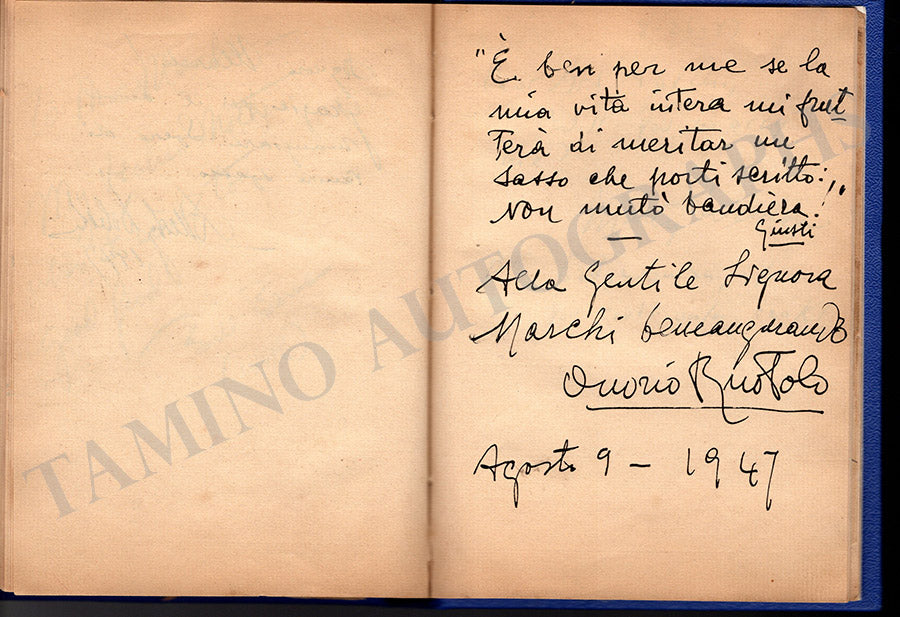 "È ben per me se la
mia vita intera mi frut
terà di meritar un
sasso che porti scritto:
Non mutò bandiera!"
Giusti
Alla Gentile Signora
Marchi beneaugurando
Onorio Ruotolo
Agosto 9 - 1947
TAMINO AUTOGRAPHS